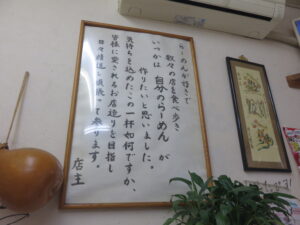 らーめんが好きで
数々の店を食べ歩き
いつかは 自分のらーめん が
作りたいと思いました。
気持ちを込めたこの一杯如何ですか、
皆様に愛されるお店造りを目指し
日々精進し頑張って参ります。
店主